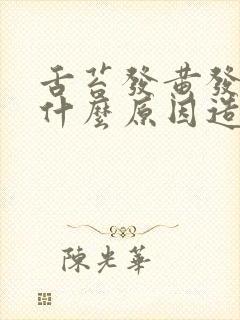 舌苔發黃發
什麼原因造
陳光華